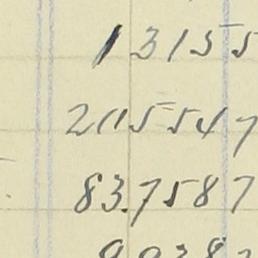 13155
2115547
83.7587